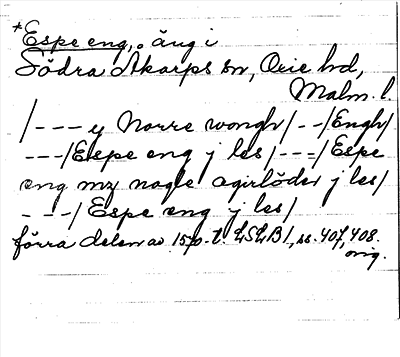 *Espe eng, äng i
Södra Åkarps sn, Oxie hd,
Malm. l.
/--- y Norre wongh/--/Engh/
---/Espe eng j les/---/Espe
eng mz nogle agirlöder j les/
---/Espe eng j les/
förra delen av 1570-t. LSLB 1, ss. 407, 408.
orig.